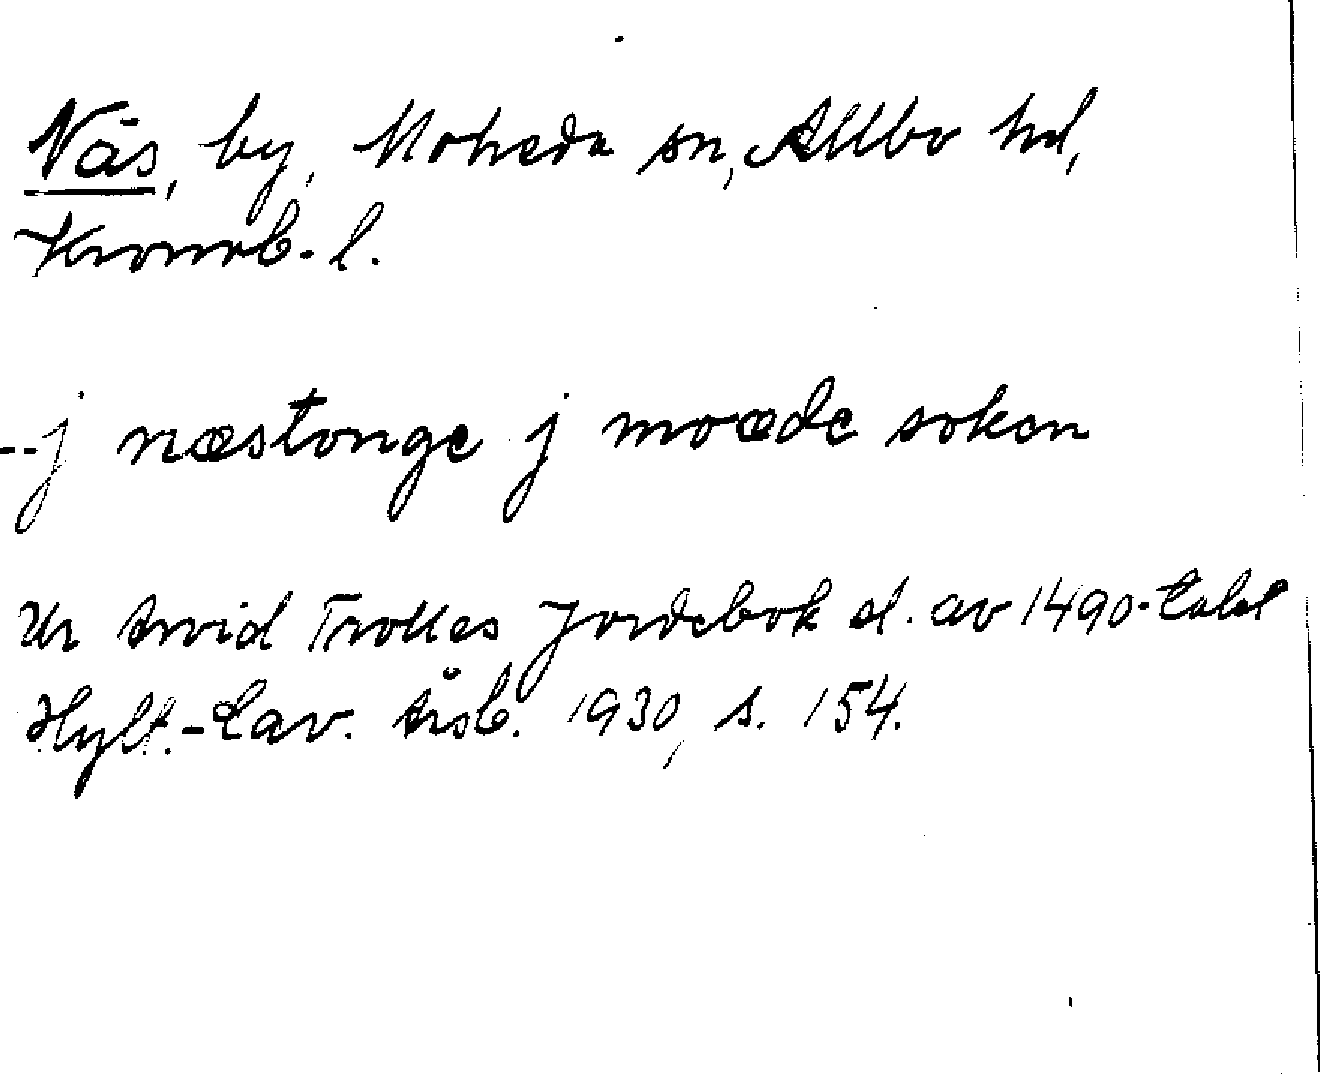 Näs, by, Moheda sn, Allbo hd,
Kronob. l.
--j næstonge j moæde soken
Ur Arvid Trolles Jordebok sl. av 1490-talet
Hylt.-Cav. Årsb. 1930, s. 154.